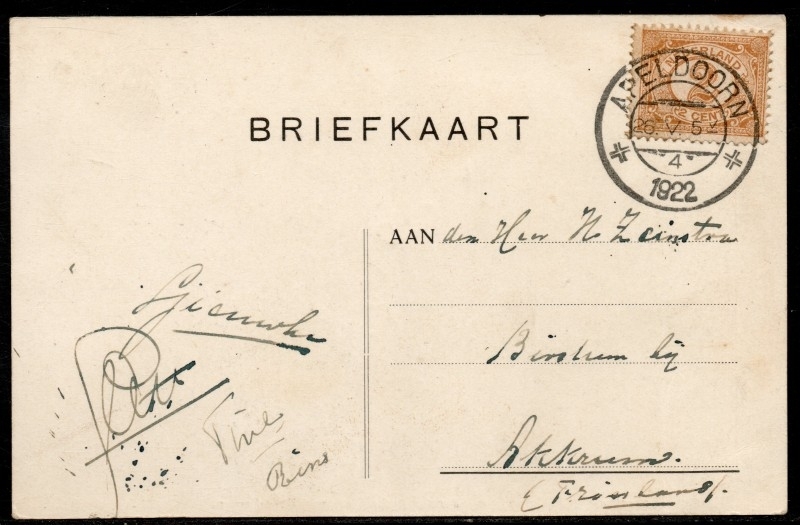 NEDERLAND
2 CENT
APELDOORN
26 V 5
4
1922
BRIEFKAART
AAN den Heer H Zeinstra
Birstum bij
Akkrum.
(Friesland).
Sjieuwke